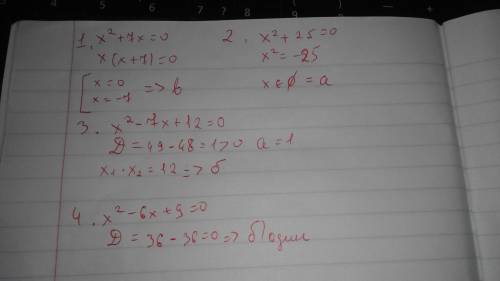 1. x²+7x=0
x(x+7)=0
[x=0
x=-7 => в
2. x²+25=0
x²=-25
x∈∅ = а
3. x²-7x+12=0
D=49-48=1>0 a=1
x₁·x₂=12 => б
4. x²-6x+9=0
D=36-36=0 => б) один